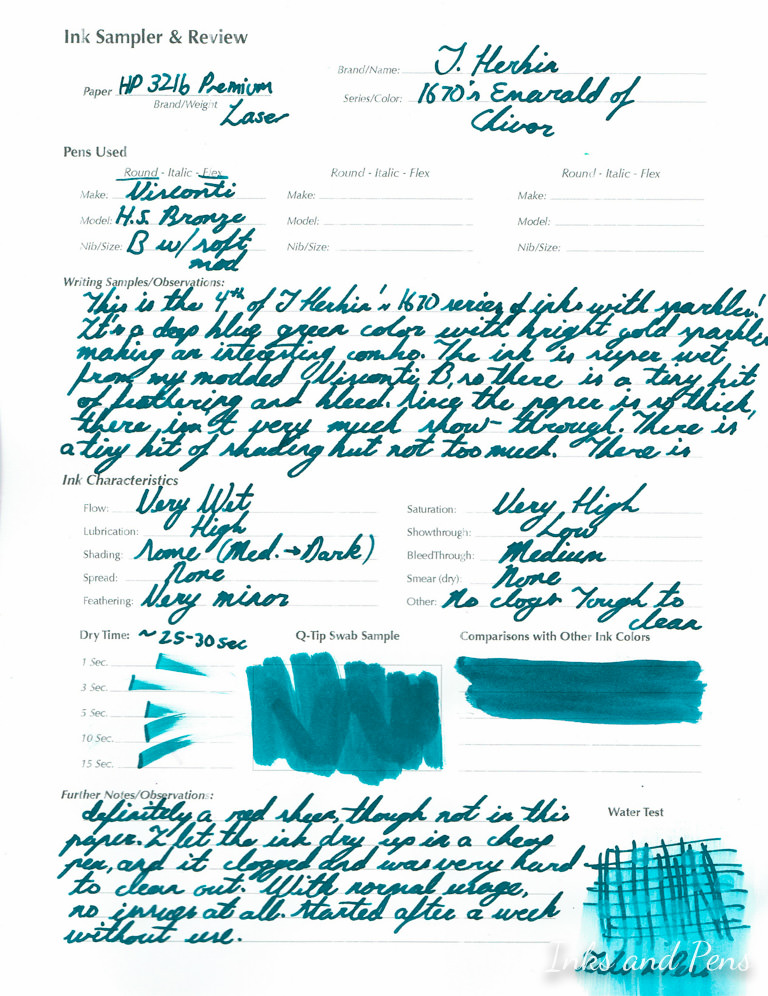 Ink Sampler & Review
Paper HP 32lb Premium
Brand/Weight
Laser
Brand/Name: J. Herbin
Series/Color: 1670's Emerald of
Chivor
Pens Used
Round - Italic - Flex
Round - Italic - Flex
Round - Italic - Flex
Make: Visconti
Make:
Make:
Model: H.S. Bronze
Model:
Model:
Nib/Size: B w/ soft
mod
Nib/Size:
Nib/Size:
Writing Samples/Observations:
This is the 4th of J Herbin's 1670 series of inks with sparkles!
It's a deep blue green color with bright gold sparkles
making an interesting combo. The ink is super wet
from my modded Visconti B, so there is a tiny bit
of feathering and bleed. Since the paper is so thick,
there isn't very much show-through. There is
a tiny bit of shading but not too much. There is
Ink Characteristics
Flow: Very Wet
Lubrication: High
Shading: Some (Med.→Dark)
Spread: None
Feathering: Very minor
Saturation: Very High
Showthrough: Low
BleedThrough: Medium
Smear (dry): None
Other: No clogs Tough to
clean
Dry Time: ~25-30 sec
1 Sec.
3 Sec.
5 Sec.
10 Sec.
15 Sec.
Q-Tip Swab Sample
Comparisons with Other Ink Colors
Further Notes/Observations:
definitely a red sheen, though not in this
paper. I let the ink dry up in a cheap
pen, and it clogged and was very hard
to clean out. With normal usage,
no issues at all. Started after a week
without use.
Water Test
Inks and Pens